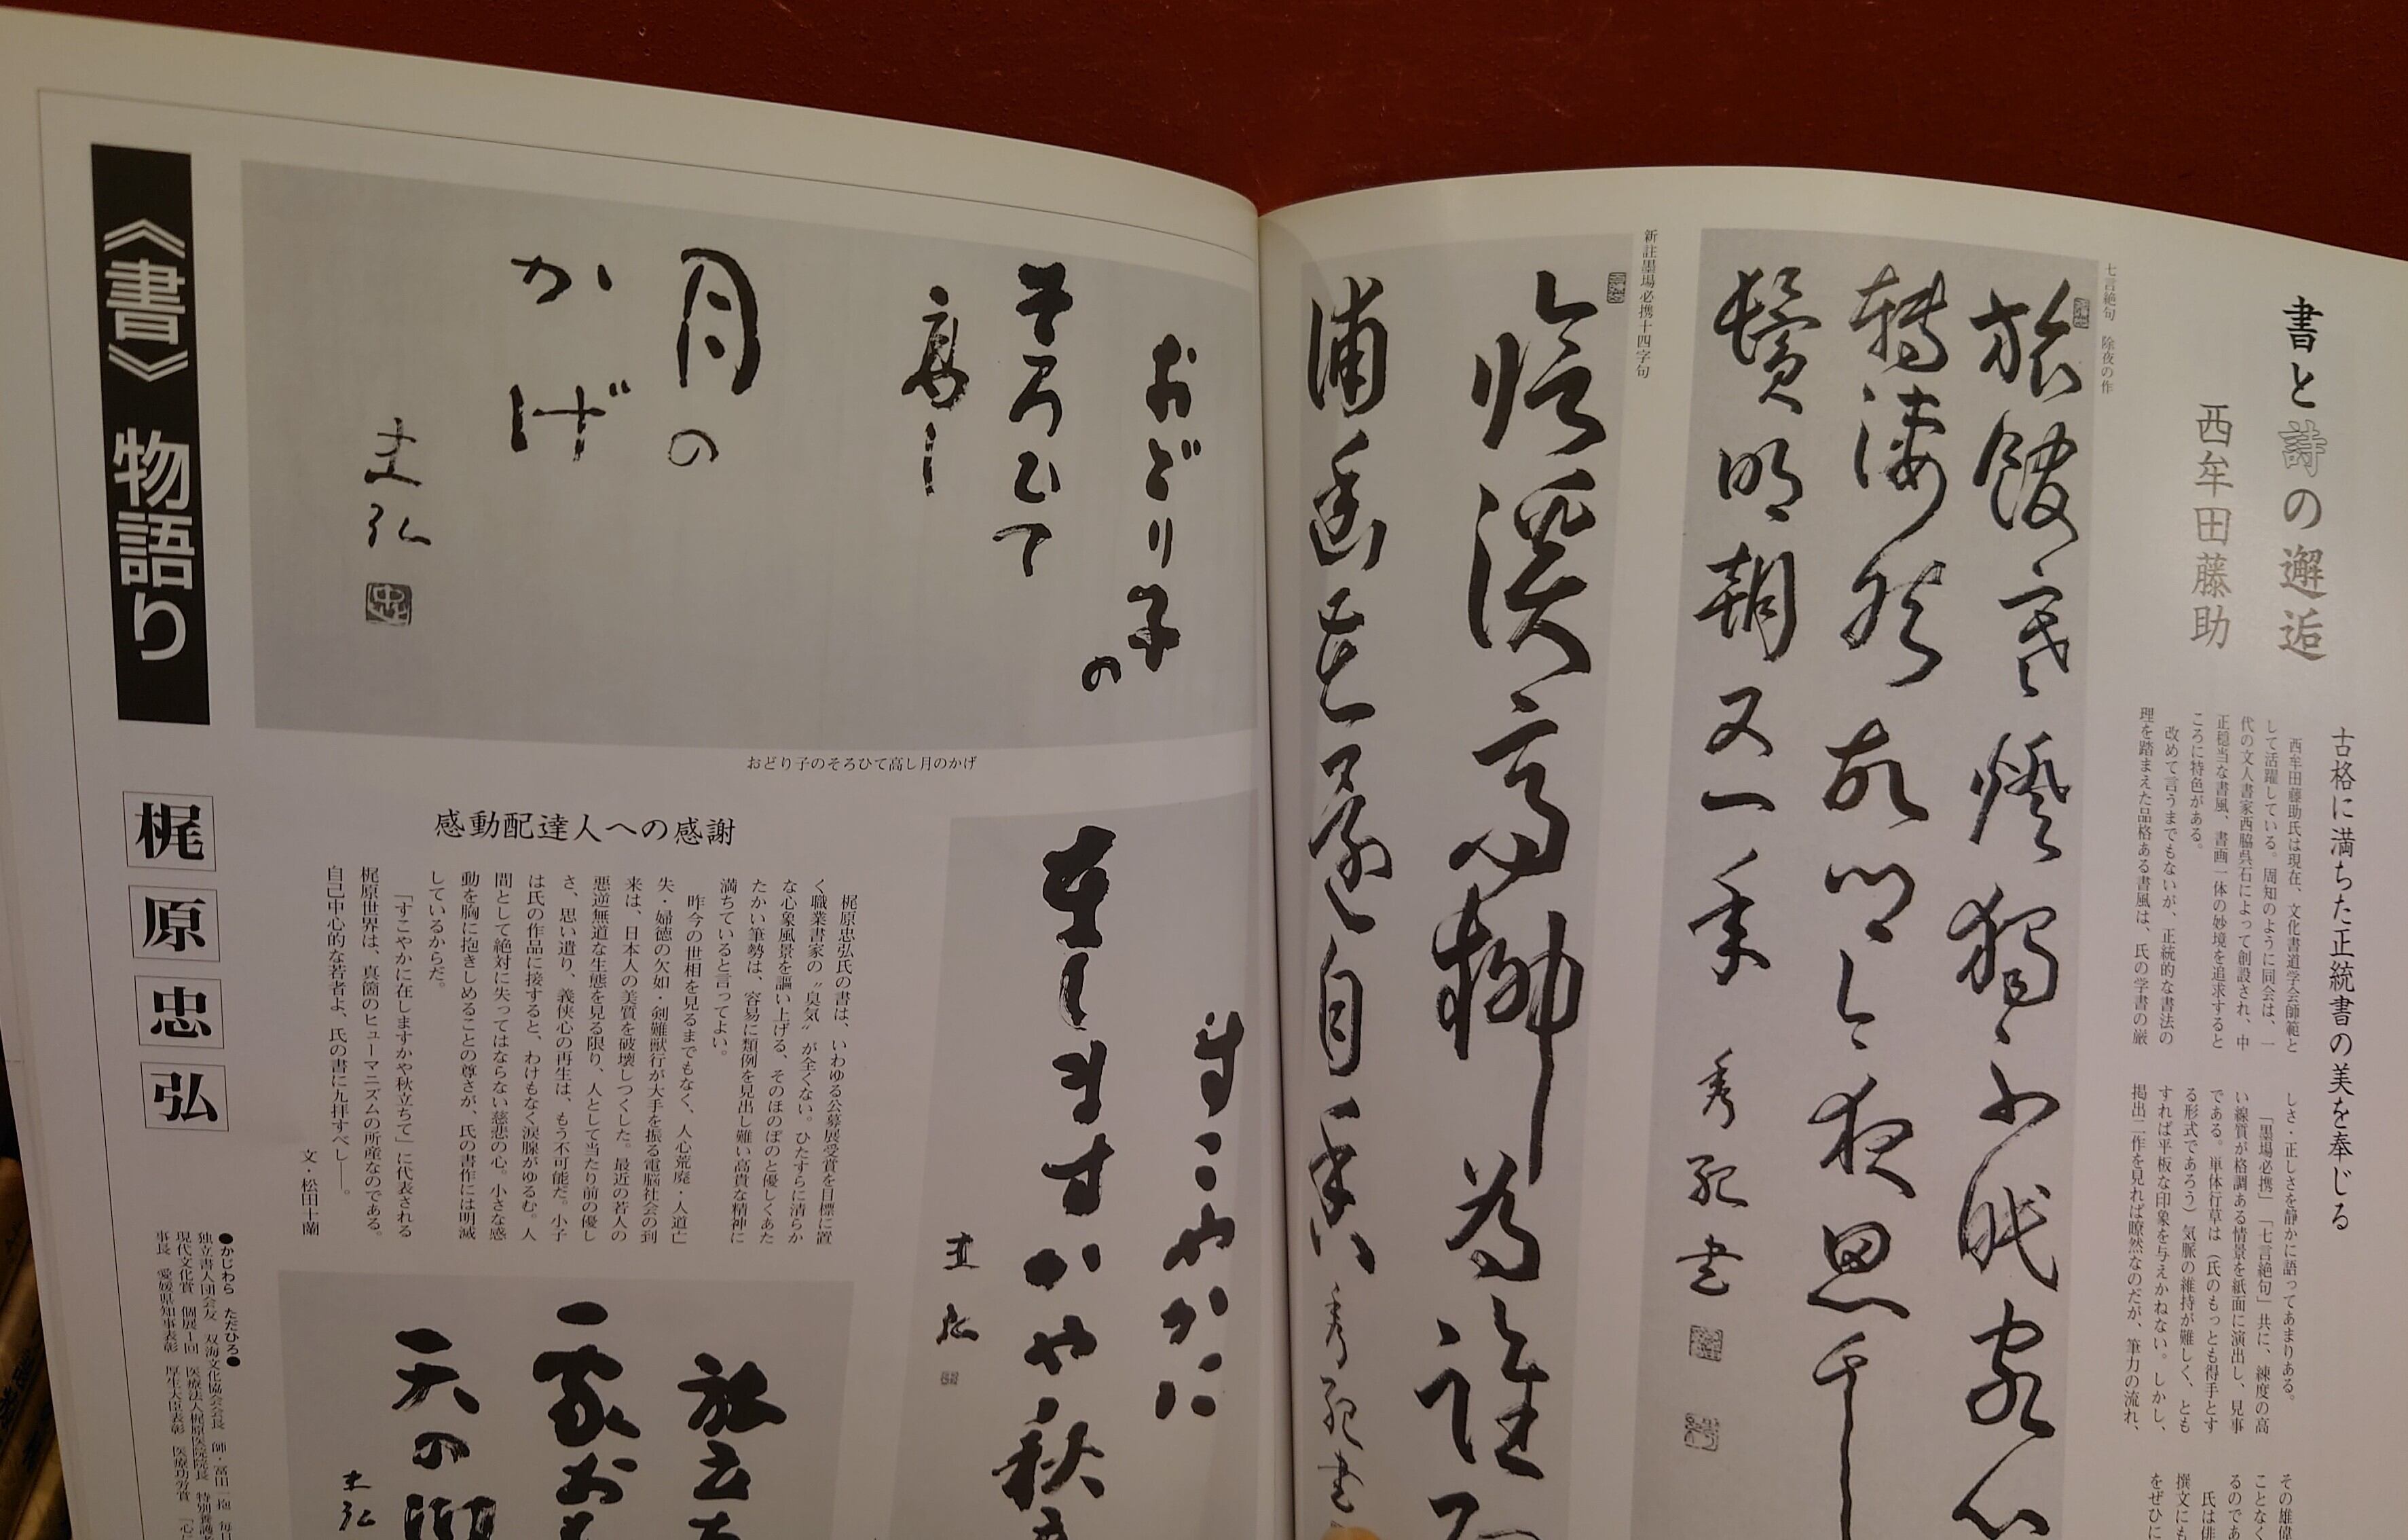 書と詩の邂逅
西牟田藤助
古格に満ちた正統書の美を奉じる
西牟田藤助氏は現在、文化書道学会師範と
して活躍している。周知のように同会は、一
代の文人書家西脇呉石によって創設され、中
正穏当な書風、書画一体の妙境を追求すると
ころに特色がある。
改めて言うまでもないが、正統的な書法の
理を踏まえた品格ある書風は、氏の学書の厳
しさ・正しさを静かに語ってあまりある。
「墨場必携」「七言絶句」共に、練度の高
い線質が格調ある情景を紙面に演出し、見事
である。単体行草は（氏のもっとも得手とす
る形式であろう）気脈の維持が難しく、とも
すれば平板な印象を与えかねない。しかし、
掲出二作を見れば瞭然なのだが、筆力の流れ、
その雄偉
ことなく
るのであ
氏は俳
撰文にも
をぜひに
七言絶句 除夜の作
旅館寒燈獨不眠客心
轉凄然故郷今夜思千
鬢明朝又一年
秀苑書
新註墨場必携十四字句
臨渓高柳為誰
浦幽花還自香
秀苑書
おどり子の
そろひて
高し
月の
かげ
忠弘
忠
おどり子のそろひて高し月のかげ
すこやかに
在しますかや秋
忠弘
感動配達人への感謝
梶原忠弘氏の書は、いわゆる公募展受賞を目標に置
く職業書家の〝臭気〟が全くない。ひたすらに清らか
な心象風景を謳い上げる、そのほのぼのと優しくあた
たかい筆勢は、容易に類例を見出し難い高貴な精神に
満ちていると言ってよい。
昨今の世相を見るまでもなく、人心荒廃・人道亡
失・婦徳の欠如・剣難獣行が大手を振る電脳社会の到
来は、日本人の美質を破壊しつくした。最近の若人の
悪逆無道な生態を見る限り、人として当たり前の優し
さ、思い遣り、義侠心の再生は、もう不可能だ。小子
は氏の作品に接すると、わけもなく涙腺がゆるむ。人
間として絶対に失ってはならない慈悲の心。小さな感
動を胸に抱きしめることの尊さが、氏の書作には明滅
しているからだ。
「すこやかに在しますかや秋立ちて」に代表される
梶原世界は、真箇のヒューマニズムの所産なのである。
自己中心的な若者よ、氏の書に九拝すべし――。
文・松田十蘭
天の
忠弘
《書》物語り
梶原忠弘
●かじわら ただひろ●
独立書人団会友 双海文化協会会長 師・冨田一抱 毎日
現代文化賞 個展1回 医療法人梶原医院院長 特別養護老
事長 愛媛県知事表彰 厚生大臣表彰 医療功労賞 「心に